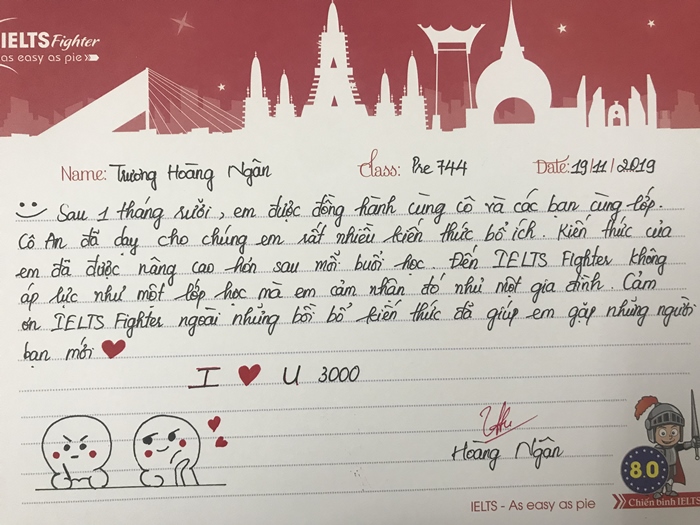 IELTS Fighter
as easy as pie
Name: Trương Hoàng Ngân Class: Pre 744 Date: 19/11/2019
Sau 1 tháng rưỡi, em được đồng hành cùng cô và các bạn cùng lớp.
Cô An đã dạy cho chúng em rất nhiều kiến thức bổ ích. Kiến thức của
em đã được nâng cao hơn sau mỗi buổi học. Đến IELTS Fighter không
áp lực như một lớp học mà em cảm nhận đó như một gia đình. Cảm
ơn IELTS Fighter ngoài những bồi bổ kiến thức đã giúp em gặp những người
bạn mới
I U 3000
Hoàng Ngân
8.0
IELTS - As easy as pie
Chiến binh IELTS